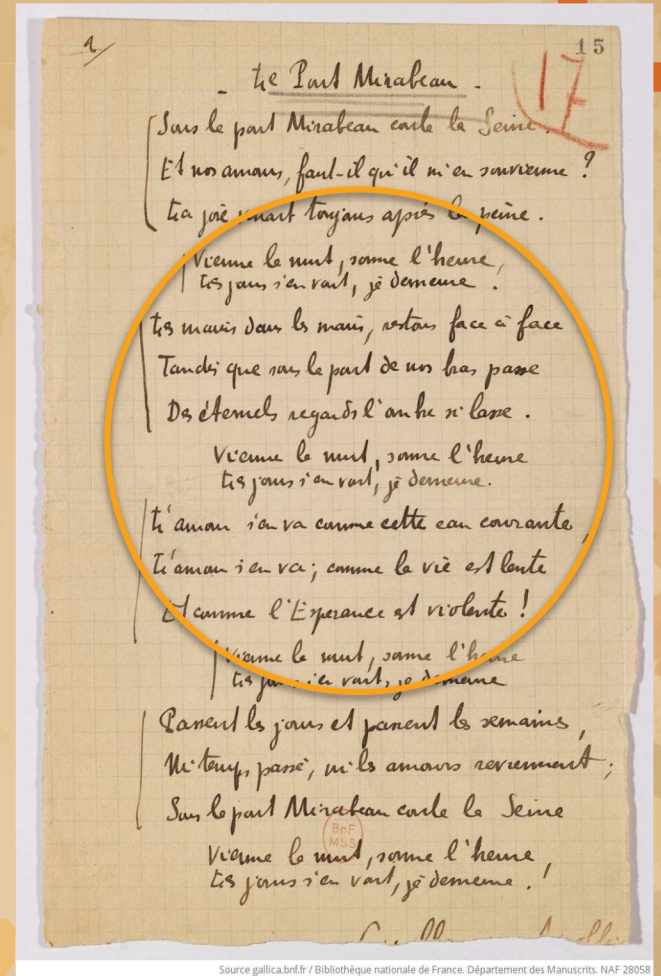 2/
15
17
Le Pont Mirabeau.
Sous le pont Mirabeau coule la Seine.
Et nos amours, faut-il qu'il m'en souvienne ?
La joie venait toujours après la peine.
Vienne la nuit, sonne l'heure,
Les jours s'en vont, je demeure.
Les mains dans les mains, restons face à face
Tandis que sous le pont de nos bras passe
Des éternels regards l'onde si lasse.
Vienne la nuit, sonne l'heure
Les jours s'en vont, je demeure.
L'amour s'en va comme cette eau courante,
L'amour s'en va ; comme la vie est lente
Et comme l'Espérance est violente !
Vienne la nuit, sonne l'heure
Les jours s'en vont, je demeure
Passent les jours et passent les semaines,
Ni temps passé, ni les amours reviennent ;
Sous le pont Mirabeau coule la Seine
BnF
MSS
Vienne la nuit, sonne l'heure,
Les jours s'en vont, je demeure.!
Source gallica.bnf.fr / Bibliothèque nationale de France. Département des Manuscrits. NAF 28058